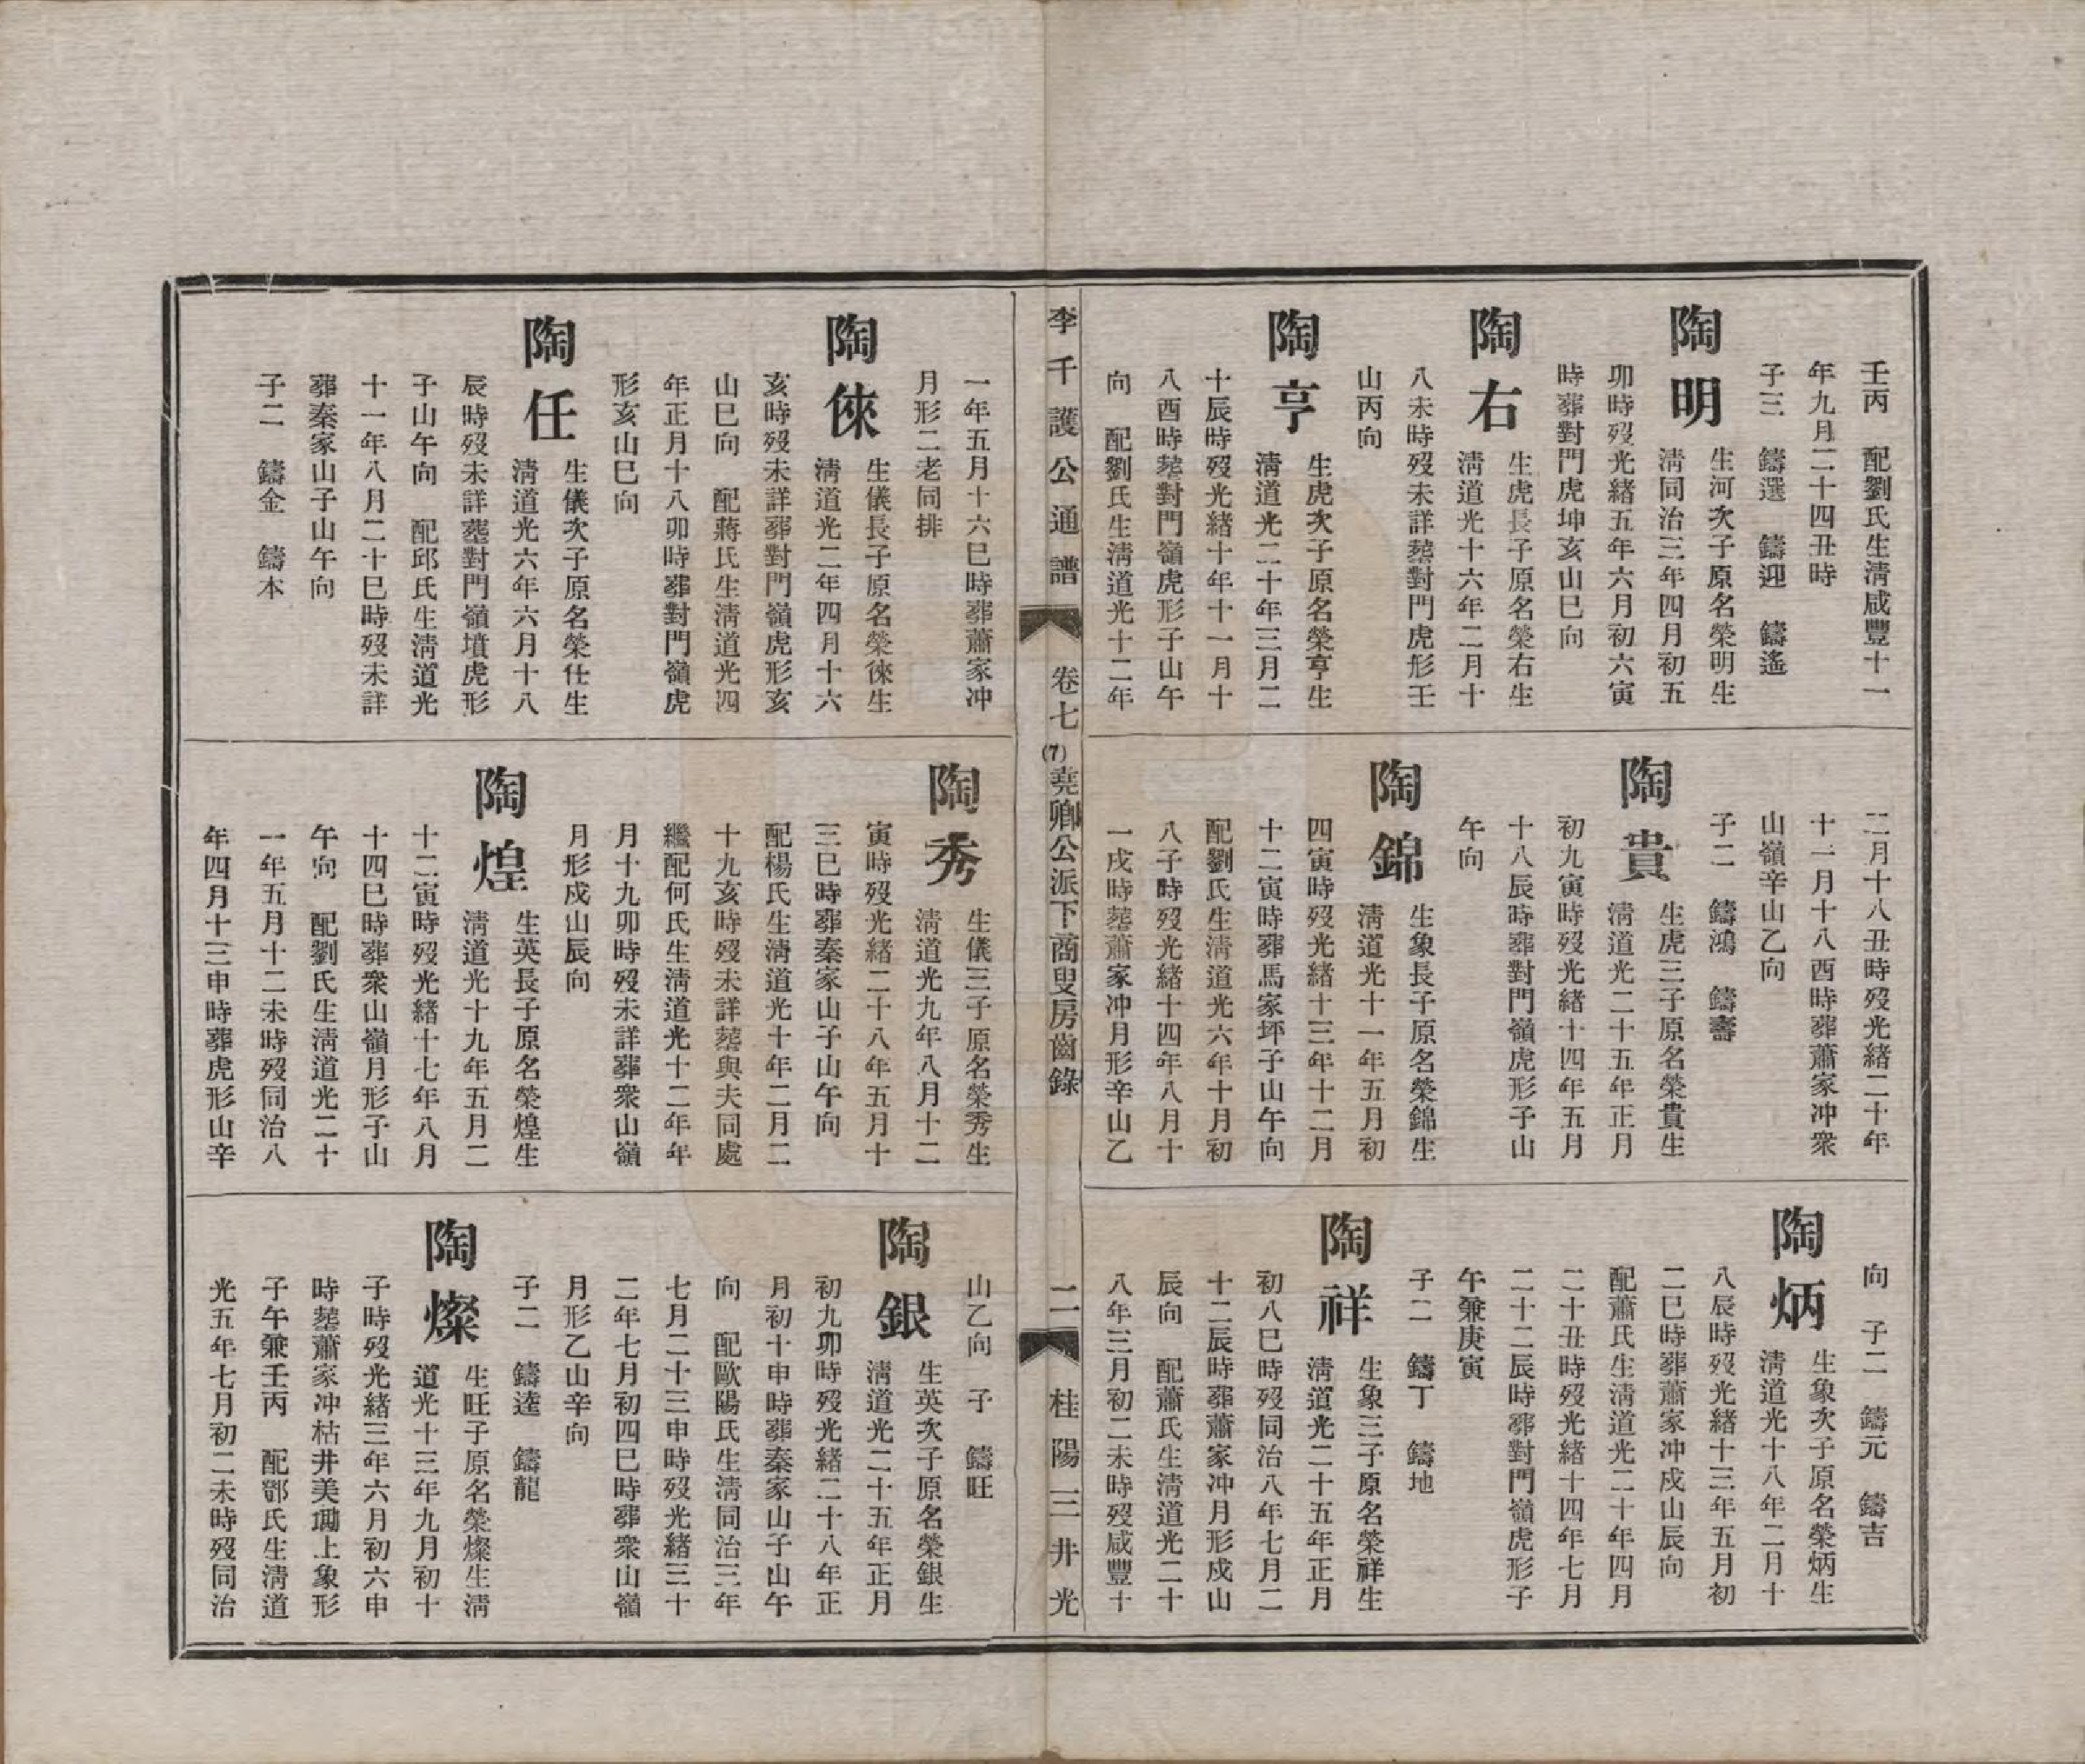 壬丙　配劉氏生清咸豐十一
年九月二十四丑時
子三　鑄選　鑄迎　鑄遙
陶明
生河次子原名榮明生
清同治三年四月初五
卯時歿光緒五年六月初六寅
時葬對門虎坤亥山巳向
陶右
生虎長子原名榮右生
清道光十六年二月十
八未時歿未詳塟對門虎形壬
山丙向
陶亨
生虎次子原名榮亨生
清道光二十年三月二
十辰時歿光緒十年十一月十
八酉時塟對門嶺虎形子山午
向　配劉氏生清道光十二年
二月十八丑時歿光緒二十年
十一月十八酉時葬蕭家冲衆
山嶺辛山乙向
子二　鑄鴻　鑄壽
陶貴
生虎三子原名榮貴生
清道光二十五年正月
初九寅時歿光緒十四年五月
十八辰時葬對門嶺虎形子山
午向
陶錦
生象長子原名榮錦生
清道光十一年五月初
四寅時歿光緒十三年十二月
十二寅時葬馬家坪子山午向
配劉氏生清道光六年十月初
八子時歿光緒十四年八月十
一戌時塟蕭家冲月形辛山乙
向　子二　鑄元　鑄吉
陶炳
生象次子原名榮炳生
清道光十八年二月十
八辰時歿光緒十三年五月初
二巳時葬蕭家冲戌山辰向
配蕭氏生清道光二十年四月
二十丑時歿光緒十四年七月
二十二辰時葬對門嶺虎形子
午兼庚寅
子二　鑄丁　鑄地
陶祥
生象三子原名榮祥生
清道光二十五年正月
初八巳時歿同治八年七月二
十二辰時葬蕭家冲月形戌山
辰向　配蕭氏生清道光二十
八年三月初二未時歿咸豐十
李千護公通譜
卷七
(7)堯卿公派下商叟房齒錄
二
桂陽三井光
一年五月十六巳時葬蕭家冲
月形二老同排
陶倈
生儀長子原名榮倈生
清道光二年四月十六
亥時歿未詳葬對門嶺虎形亥
山巳向　配蔣氏生清道光四
年正月十八卯時葬對門嶺虎
形亥山巳向
陶任
生儀次子原名榮仕生
清道光六年六月十八
辰時歿未詳塟對門嶺墳虎形
子山午向　配邱氏生清道光
十一年八月二十巳時歿未詳
葬秦家山子山午向
子二　鑄金　鑄本
陶秀
生儀三子原名榮秀生
清道光九年八月十二
寅時歿光緒二十八年五月十
三巳時葬秦家山子山午向
配楊氏生清道光十年二月二
十九亥時歿未詳塟與夫同處
繼配何氏生清道光十二年年
月十九卯時歿未詳葬衆山嶺
月形戌山辰向
陶煌
生英長子原名榮煌生
清道光十九年五月二
十二寅時歿光緒十七年八月
十四巳時葬衆山嶺月形子山
午向　配劉氏生清道光二十
一年五月十二未時歿同治八
年四月十三申時葬虎形山辛
山乙向　子　鑄旺
陶銀
生英次子原名榮銀生
清道光二十五年正月
初九卯時歿光緒二十八年正
月初十申時葬秦家山子山午
向　配歐陽氏生清同治三年
七月二十三申時歿光緒三十
二年七月初四巳時葬衆山嶺
月形乙山辛向
子二　鑄逵　鑄龍
陶燦
生旺子原名榮燦生清
道光十三年九月初十
子時歿光緒三年六月初六申
時塟蕭家冲枯井美坳上象形
子午兼壬丙　配鄧氏生清道
光五年七月初二未時歿同治